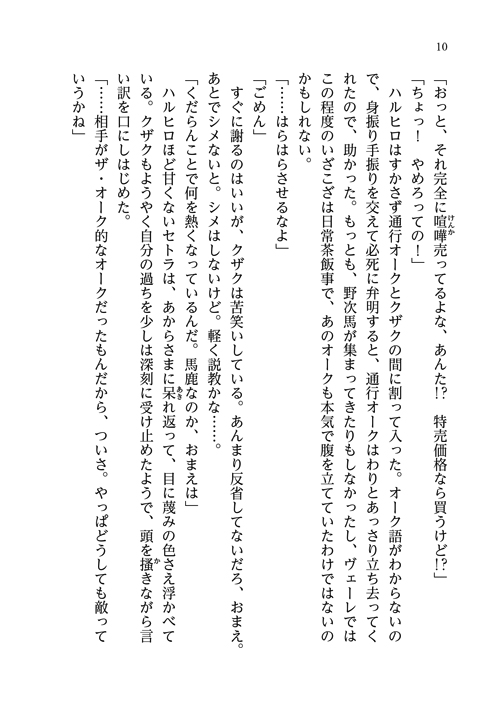 10
「おっと、それ完全に喧嘩売ってるよな、あんた!?　特売価格なら買うけど!?」
「ちょっ！　やめろっての！」
　ハルヒロはすかさず通行オークとクザクの間に割って入った。オーク語がわからないの
で、身振り手振りを交えて必死に弁明すると、通行オークはわりとあっさり立ち去ってく
れたので、助かった。もっとも、野次馬が集まってきたりもしなかったし、ヴェーレでは
この程度のいざこざは日常茶飯事で、あのオークも本気で腹を立てていたわけではないの
かもしれない。
「……はらはらさせるなよ」
「ごめん」
　すぐに謝るのはいいが、クザクは苦笑いしている。あんまり反省してないだろ、おまえ。
あとでシメないと。シメはしないけど。軽く説教かな……。
「くだらんことで何を熱くなっているんだ。馬鹿なのか、おまえは」
　ハルヒロほど甘くないセトラは、あからさまに呆れ返って、目に蔑みの色さえ浮かべて
いる。クザクもようやく自分の過ちを少しは深刻に受け止めたようで、頭を掻きながら言
い訳を口にしはじめた。
「……相手がザ・オーク的なオークだったもんだから、ついさ。やっぱどうしても敵って
いうかね」